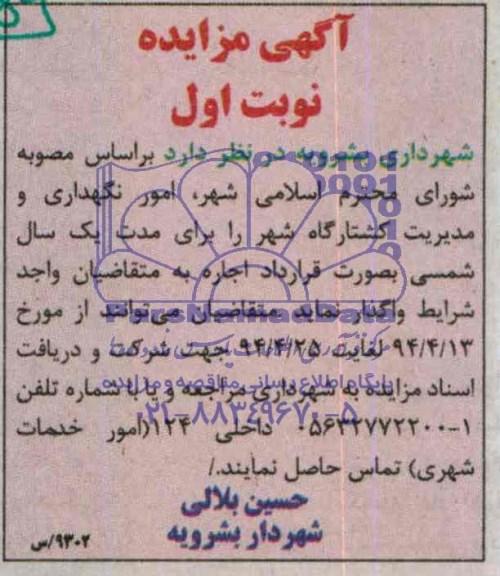 آگهی مزایده
نوبت اول
شهرداری بشرویه در نظر دارد براساس مصوبه
شورای محترم اسلامی شهر، امور نگهداری و
مدیریت کشتارگاه شهر را برای مدت یک سال
شمسی بصورت قرارداد اجاره به متقاضیان واجد
شرایط واگذار نماید متقاضیان می‌توانند از مورخ
۹۴/۴/۱۳ لغایت ۹۴/۴/۲۵ جهت شرکت و دریافت
اسناد مزایده به شهرداری مراجعه و یا با شماره تلفن
۰۵۶۳۲۷۷۲۲۰۰-۱ داخلی ۱۲۴(امور خدمات
شهری) تماس حاصل نمایند./
حسین بلالی
شهردار بشرویه
۹۳۰۲/س
ParsNamadData
پایگاه اطلاع رسانی مناقصه و مزایده
۰۲۱-۸۸۳۴۹۶۷۰-۵